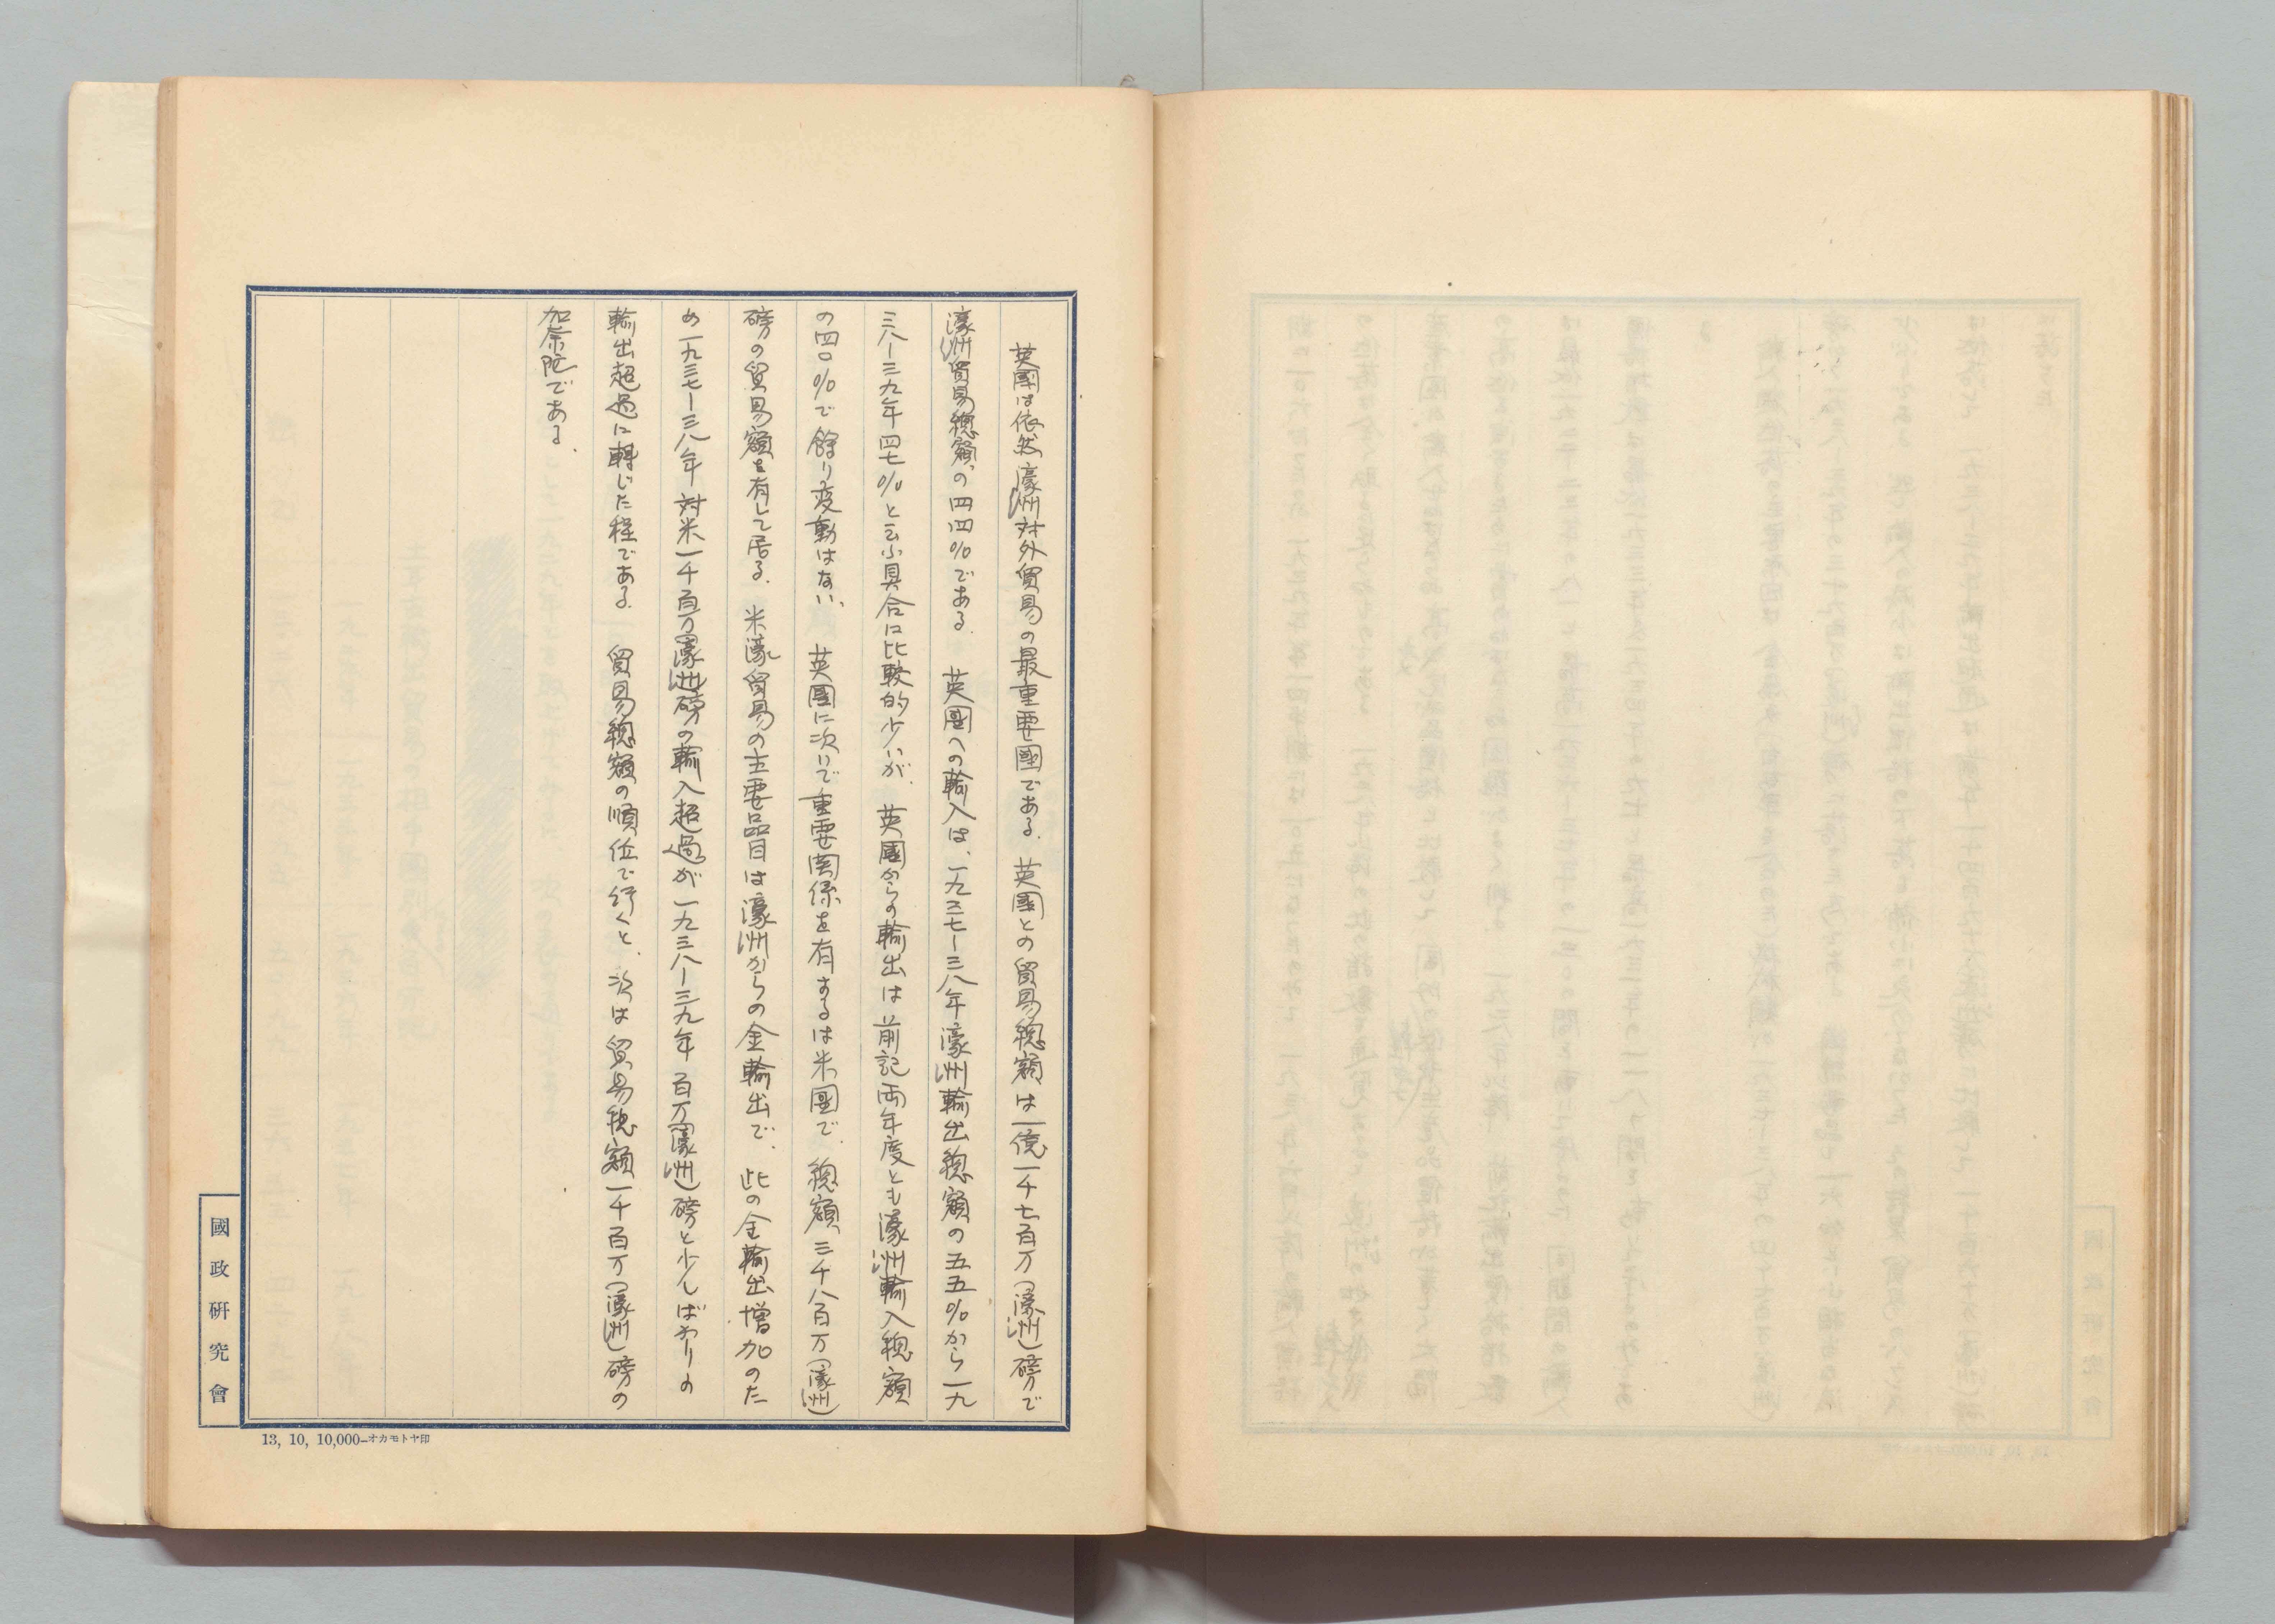 英國は依然濠洲対外貿易の最重要國である．英國との貿易總額は一億一千七百万（濠洲）磅で
濠洲貿易總額の四四％である．英國への輸入は、一九三七ー三八年濠洲輸出總額の五五％から一九
三八ー三九年四七％と云ふ具合に比較的少いが．英國からの輸出は前記両年度とも濠洲輸入總額
の四〇％で餘り変動はない、英國に次いで重要関係を有するは米國で．總額三千八百万（濠洲）
磅の貿易額を有して居る．米濠貿易の主要品目は濠洲からの金輸出で．此の金輸出増加のた
め一九三七ー三八年対米一千百万（濠洲）磅の輸入超過が一九三八ー三九年百万（濠洲）磅と少しばかりの
輸出超過に轉じた程である．貿易總額の順位で行くと．次は貿易總額一千百万（濠洲）磅の
加奈陀である．
國政研究會
13, 10, 10,000—オカモトヤ印